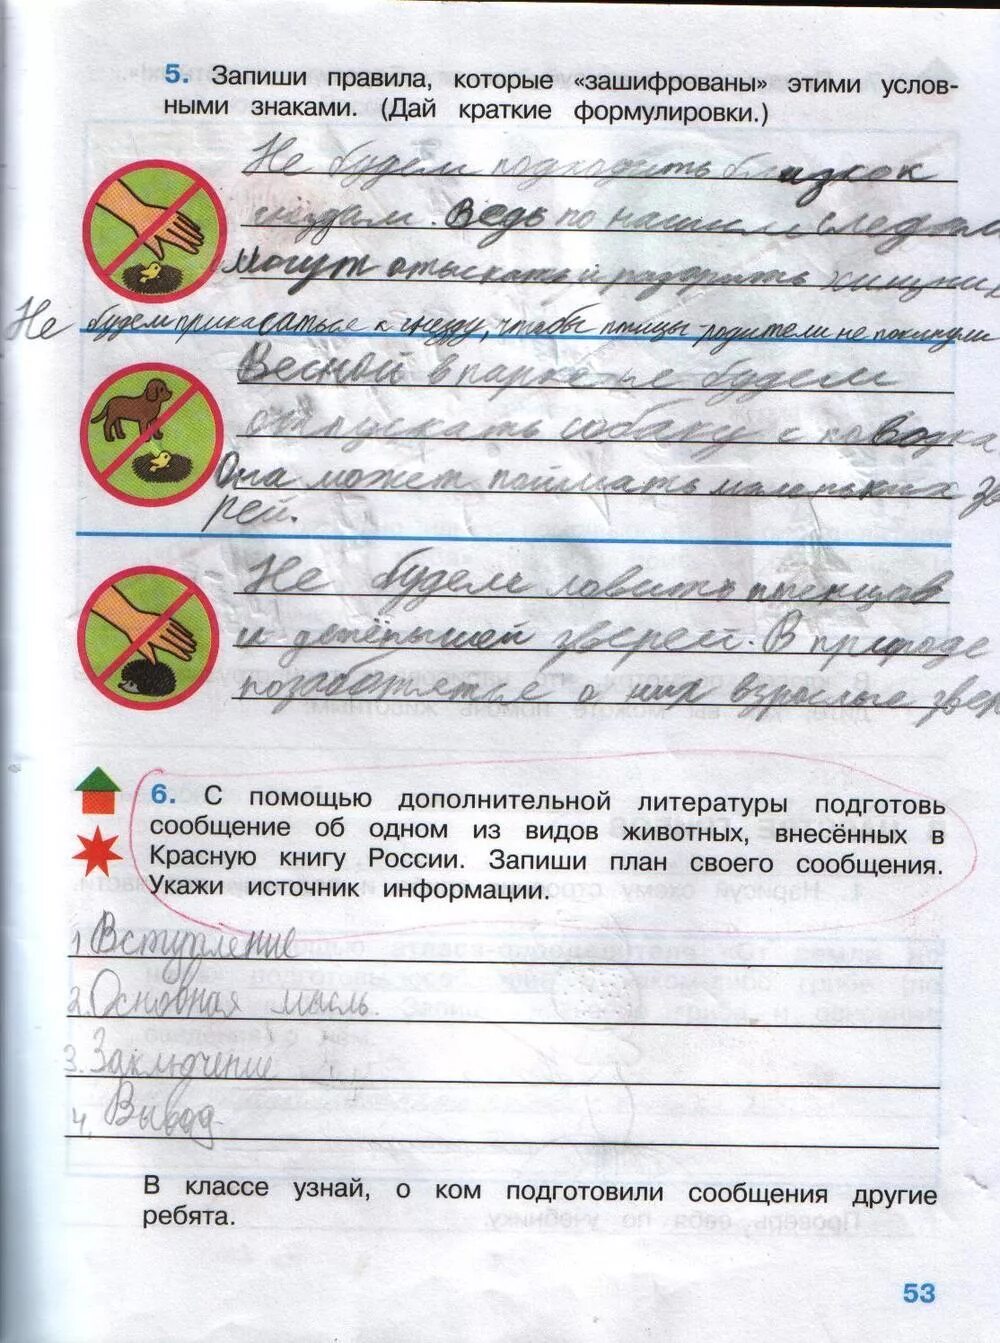 5. Запиши правила, которые «зашифрованы» этими услов-
ными знаками. (Дай краткие формулировки.)
Не будем подходить близко к
гнёздам. Ведь по нашим следам
могут отыскать и разорить хищники
Не будем прикасаться к гнезду, чтобы птицы-родители не покинули
Весной в парке не будем
отпускать собаку с поводка
Она может поймать маленьких зве
рей.
Не будем ловить птенцов
и детёнышей зверей. В природе
позаботятся о них взрослые звер
6. С помощью дополнительной литературы подготовь
сообщение об одном из видов животных, внесённых в
Красную книгу России. Запиши план своего сообщения.
Укажи источник информации.
1. Вступление
2. Основная мысль.
3. Заключение
4. Вывод
В классе узнай, о ком подготовили сообщения другие
ребята.
53